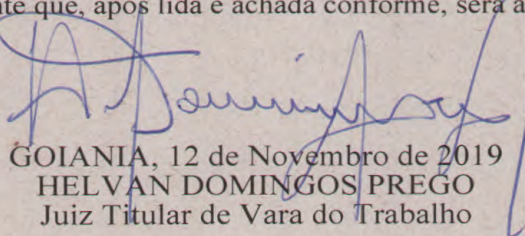 te que, após lida e achada conforme, será a
GOIANIA, 12 de Novembro de 2019
HELVAN DOMINGOS PREGO
Juiz Titular de Vara do Trabalho